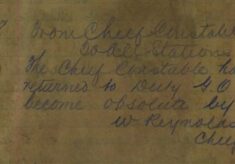 From Chief Constable
To All Stations
The Chief Constable ha
returned to Duty G.O
become obsolete by
W Reynolds
Chief